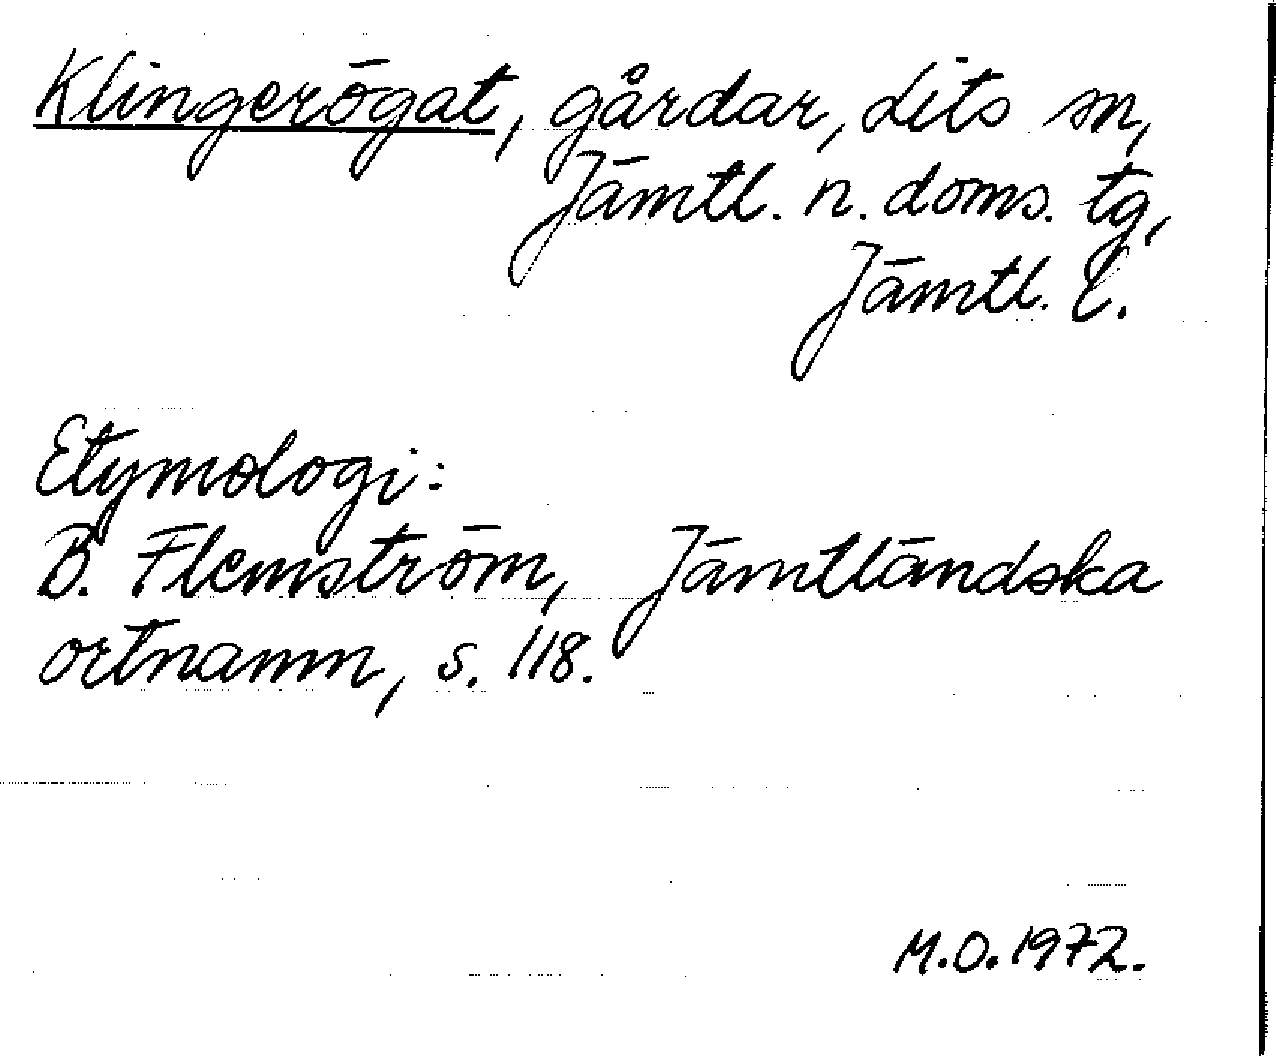 Klingerögat, gårdar, Lits sn,
Jämtl. n. doms. tg,
Jämtl. l.
Etymologi:
B. Flemström, Jämtländska
ortnamn, s. 118.
M.O. 1972.